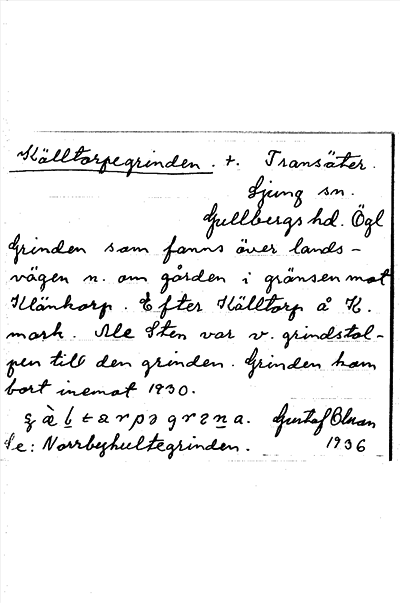 Källtorpegrinden. +. Transäter.
Ljung sn.
Gullbergs hd. Ögl
Grinden som fanns över lands-
vägen n. om gården i gränsen mot
Klänkorp. Efter Källtorp å K.
mark. Ale Sten var v. grindstol-
pen till den grinden. Grinden kom
bort inemot 1930.
Gustaf
Se: Norrbyhultegrinden. 1936